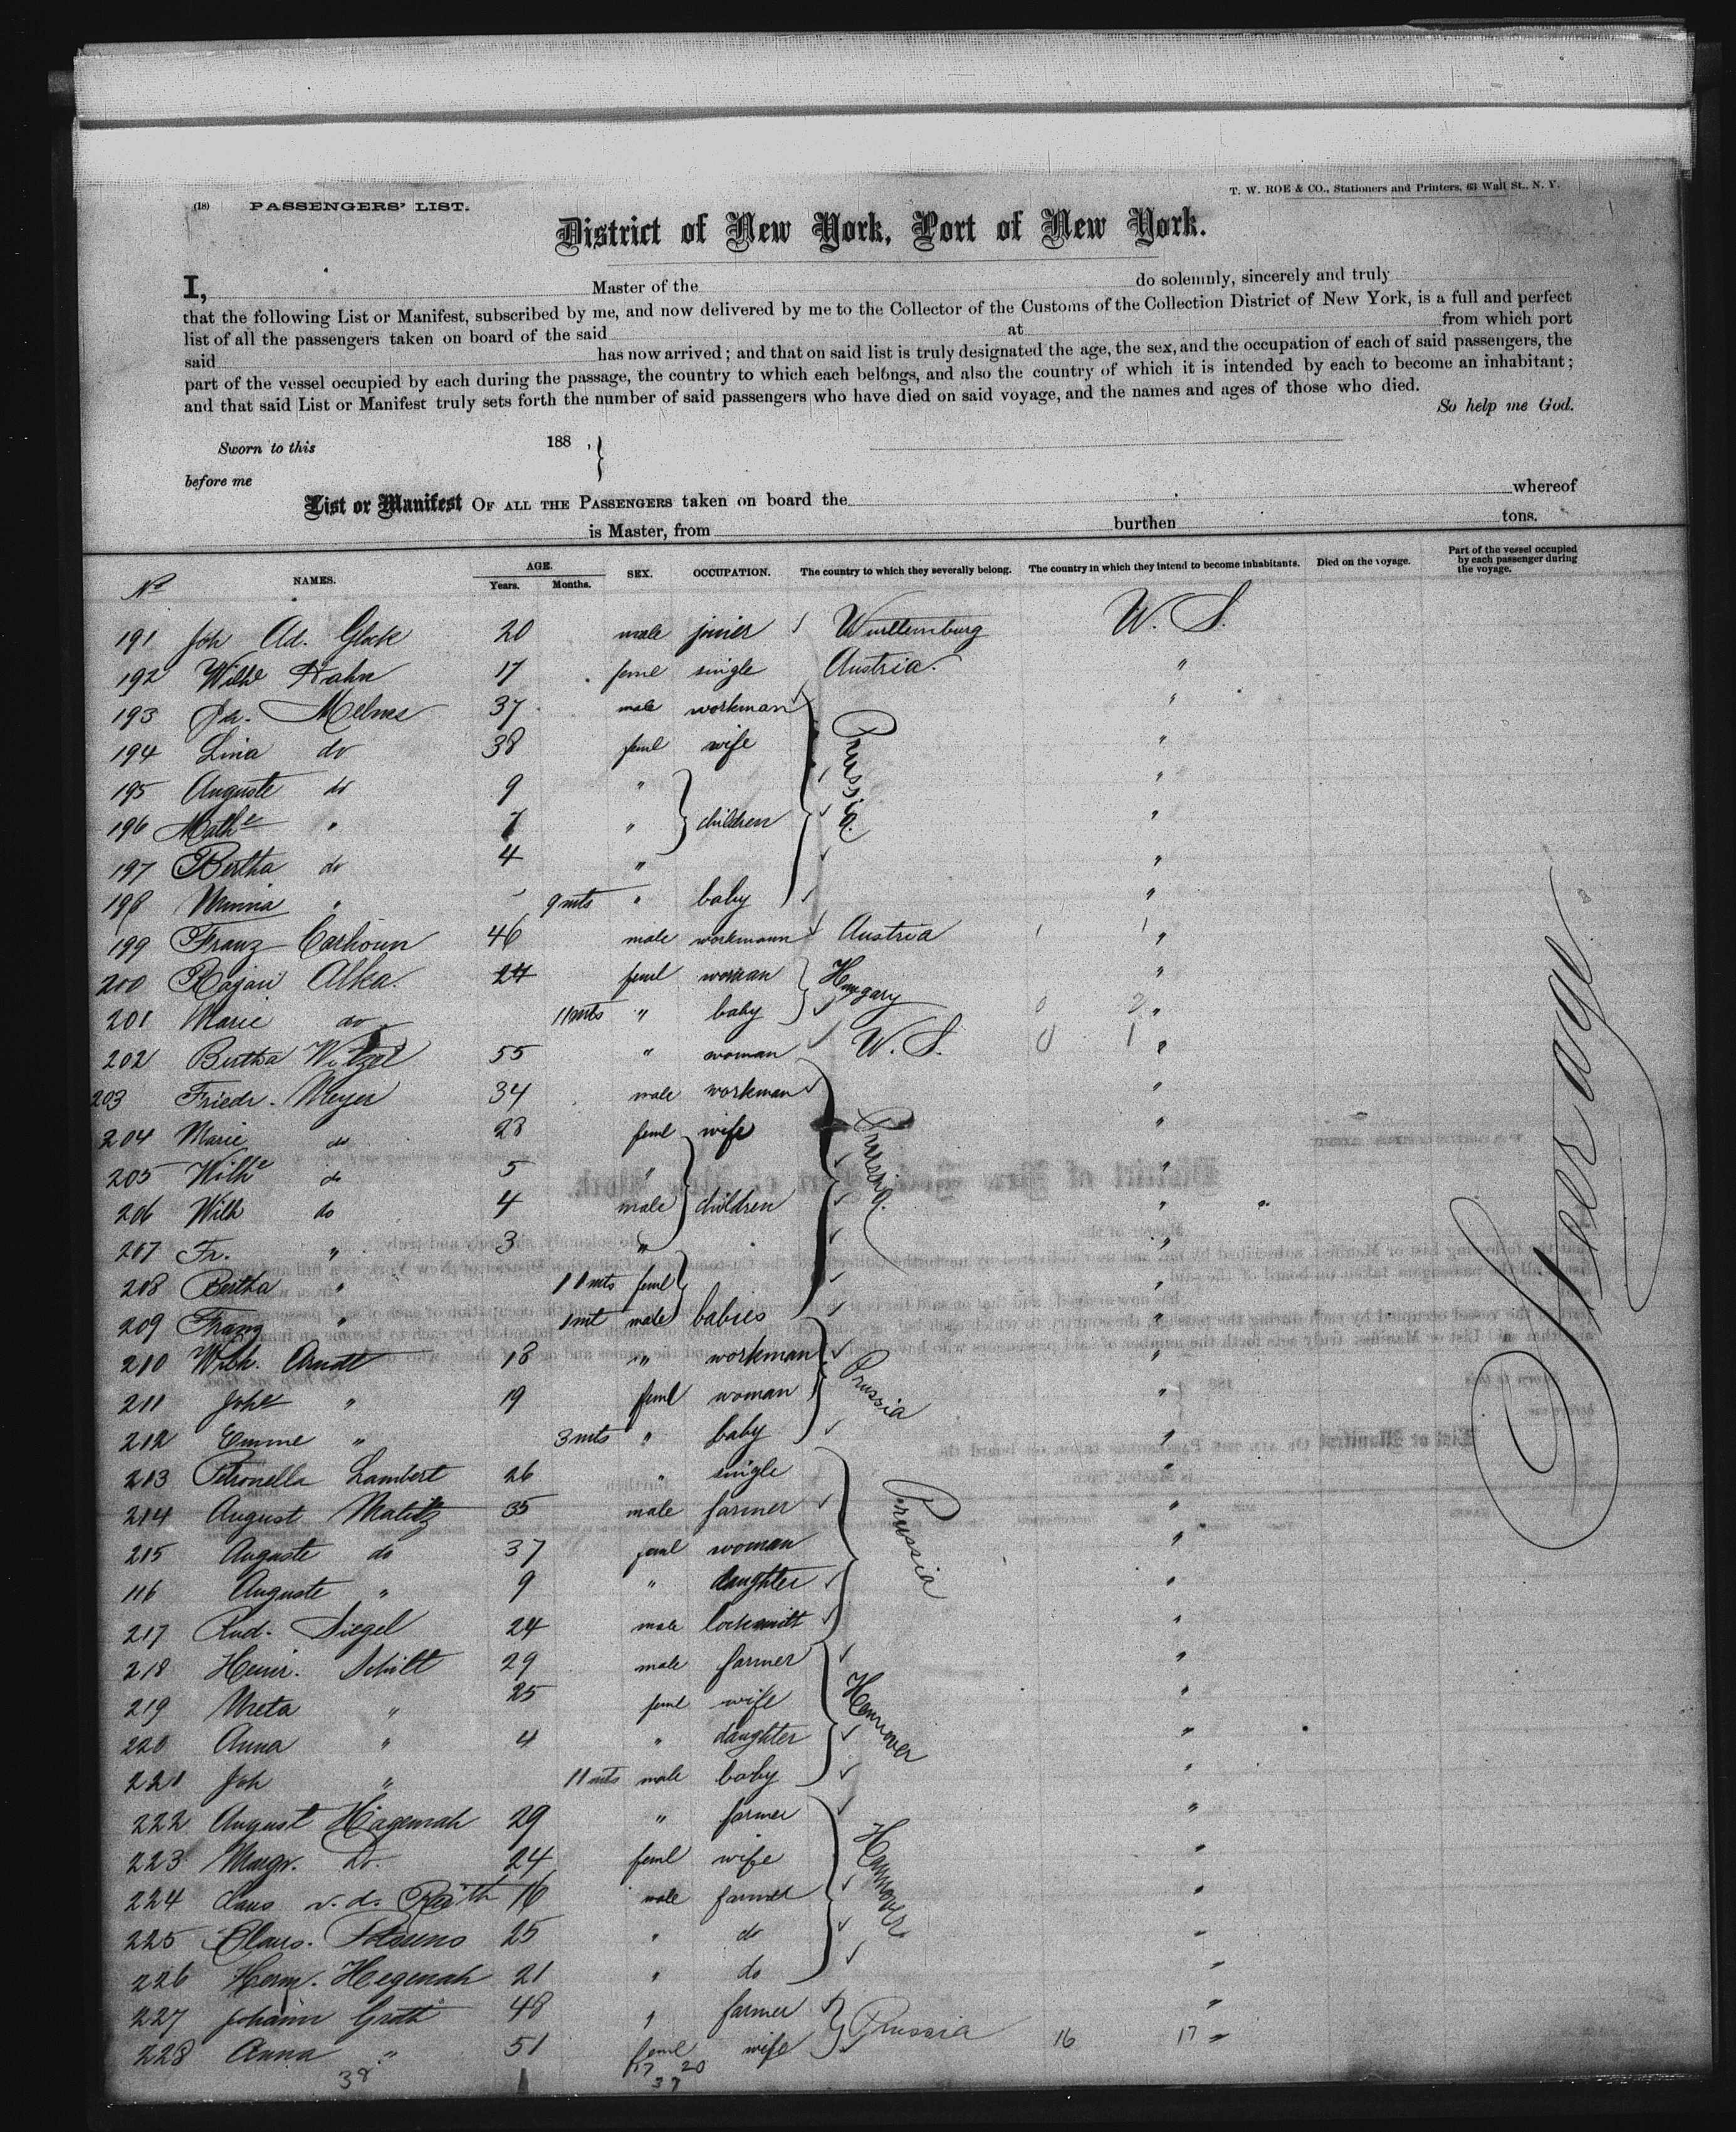 T. W. ROE & CO., Stationers and Printers, 63 Wall St., N. Y.
(18) PASSENGERS' LIST.
District of New York, Port of New York.
I, Master of the do solemnly, sincerely and truly
that the following List or Manifest, subscribed by me, and now delivered by me to the Collector of the Customs of the Collection District of New York, is a full and perfect
list of all the passengers taken on board of the said at from which port
said has now arrived; and that on said list is truly designated the age, the sex, and the occupation of each of said passengers, the
part of the vessel occupied by each during the passage, the country to which each belongs, and also the country of which it is intended by each to become an inhabitant;
and that said List or Manifest truly sets forth the number of said passengers who have died on said voyage, and the names and ages of those who died.
So help me God.
Sworn to this 188 ,
before me
List or Manifest OF ALL THE PASSENGERS taken on board the whereof
is Master, from burthen tons.
No NAMES. AGE. Years. Months. SEX. OCCUPATION. The country to which they severally belong. The country in which they intend to become inhabitants. Died on the voyage. Part of the vessel occupied by each passenger during the voyage.
191 Joh Ad. Glock 20 male joiner Wurttemburg U. S.
192 Wilhe Hahn 17 feml single Austria "
193 Melms 37 male workman Prussia "
194 Lina do 38 feml wife "
195 Auguste do 9 " "
196 Mathe " 7 " children "
197 Bertha do 4 " "
198 Minna " 9 mts " baby "
199 Franz 46 male workmann Austria 1 1 "
200 Alka. 24 feml woman Hungary "
201 Marie do 11 mts " baby 0 2 "
202 Bertha Witzel 55 " woman U. S. 0 1 "
203 Friedr. Meyer 34 male workman Prussia "
204 Marie do 28 feml wife "
205 Wilhe do 5 " "
206 Wilh do 4 male children "
207 Fr. " 3 " "
208 Bertha " 11 mts feml "
209 Franz " 1 mt male babies "
210 Wilh. Arndt 18 " workman Prussia "
211 Johe " 19 feml woman "
212 Emme " 3 mts " baby "
213 Petronella Lambert 26 " single Prussia "
214 August Malitz 35 male farmer "
215 Auguste do 37 feml woman "
116 Auguste " 9 " daughter "
217 Rud. Siegel 24 male locksmith "
218 Heinr. Schilt 29 male farmer Hannover "
219 Meta " 25 feml wife "
220 Anna " 4 " daughter "
221 Joh " 11 mts male baby "
222 August Hagemah 29 " farmer Hannover "
223 Margr. Do. 24 feml wife "
224 Claus v. d. Reith 16 male farmer "
225 Claus. 25 " do "
226 Herm. Hegemah 21 " do "
227 Johann Groth 48 " farmer Prussia "
228 Anna " 51 feml wife 16 17 "
38 17 20
37
Steerage